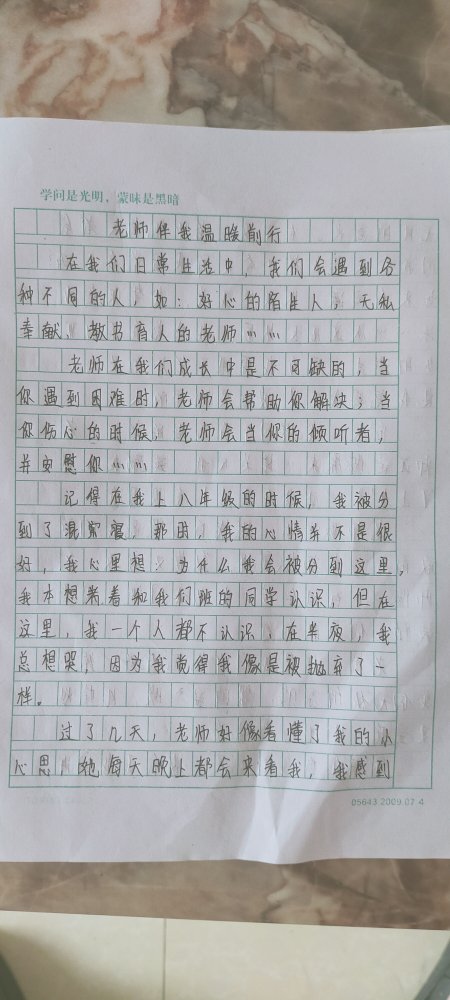 学问是光明，蒙昧是黑暗
老师伴我温暖前行
在我们日常生活中，我们会遇到各
种不同的人，如：好心的陌生人，无私
奉献、教书育人的老师……
老师在我们成长中是不可缺的，当
你遇到困难时，老师会帮助你解决；当
你伤心的时候，老师会当你的倾听者，
并安慰你……
记得在我上八年级的时候，我被分
到了混寝，那时，我的心情并不是很
好，我心里想：为什么我会被分到这里，
我本想着和我们班的同学认识，但在
这里，我一个人都不认识，在半夜，我
总想哭，因为我觉得我像是被抛弃了一
样。
过了几天，老师好像看懂了我的小
心思，她每天晚上都会来看我，我感到
05643.2009.07.4